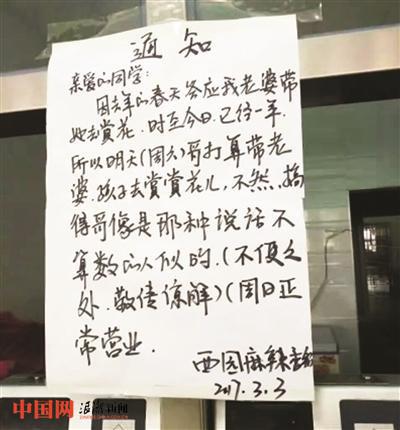 通知
亲爱的同学:
因去年的春天答应我老婆带
她去賞花.时至今日.已经一年.
所以明天(周六)哥打算带老
婆.孩子去赏赏花儿,不然,搞
得哥像是那种说话不
算数的人似的.(不便之
处.敬请谅解)(周日正
常营业.
西园麻辣香锅
2017.3.3
中国网 浪潮新闻